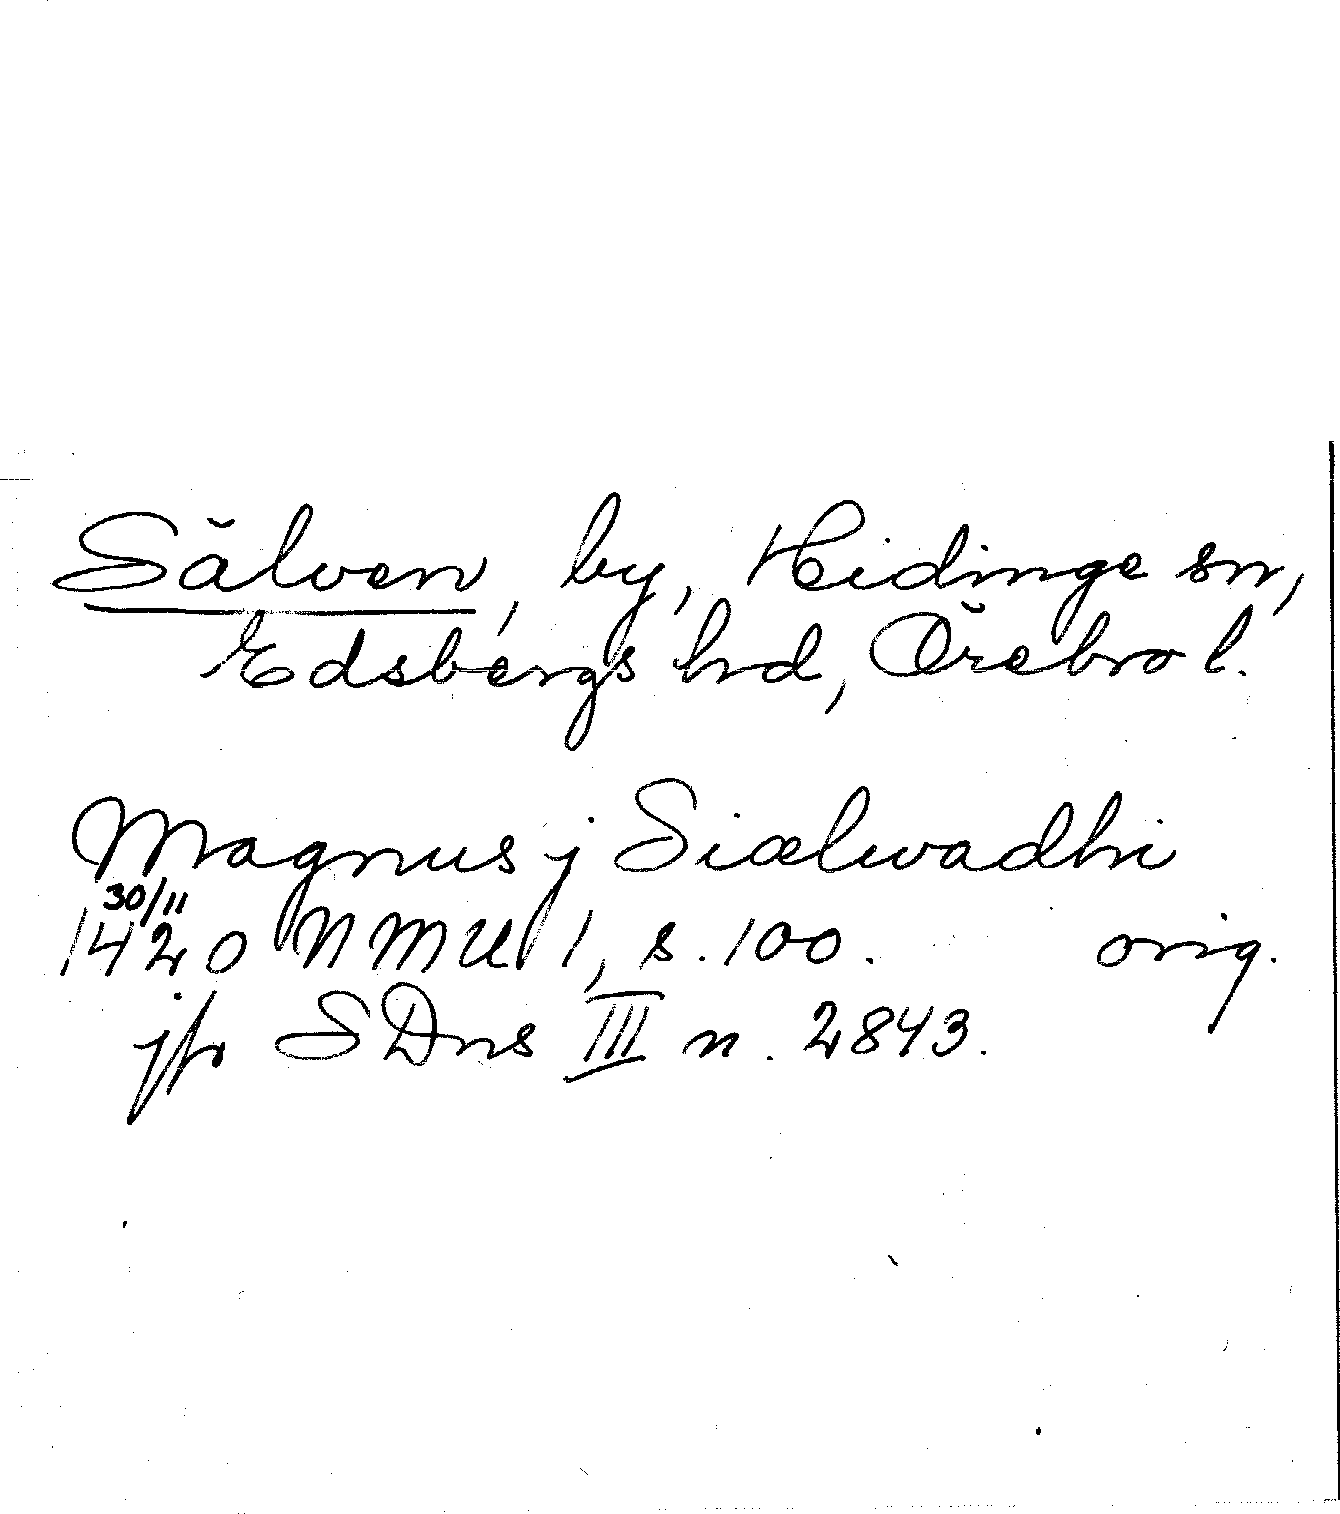 Sälven, by, Hidinge sn,
Edsbergs hd, Örebro l.
Magnus j Siælwadhi
30/11
1420 NMU 1, s. 100. orig.
jfr SDns III n. 2843.